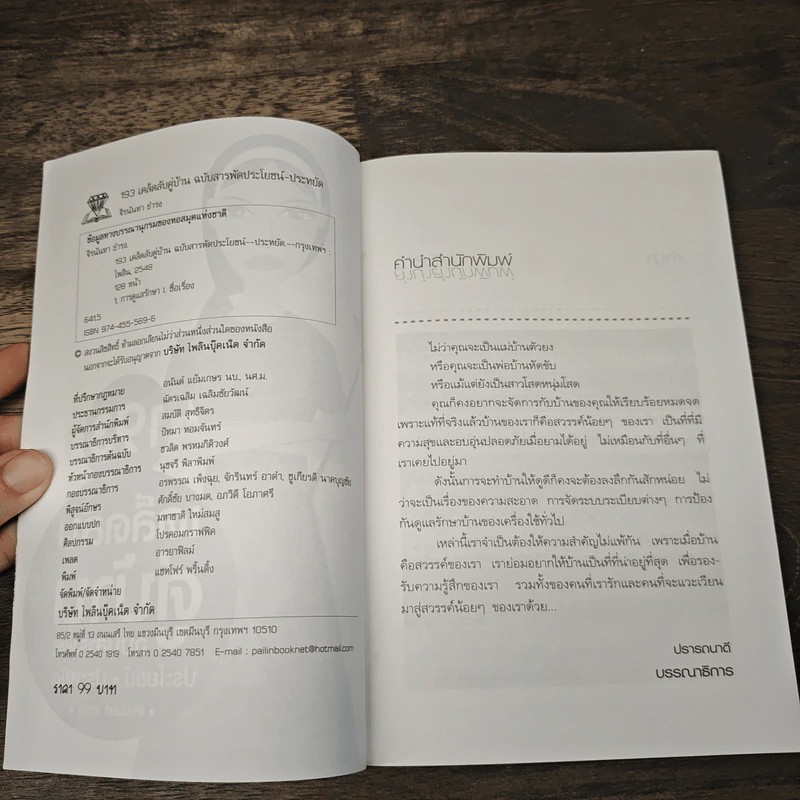 193 เคล็ดลับคู่บ้าน ฉบับสารพัดประโยชน์-ประหยัด
จิรนันทา ธำรง
ข้อมูลทางบรรณานุกรมของหอสมุดแห่งชาติ
จิรนันทา ธำรง.
193 เคล็ดลับคู่บ้าน ฉบับสารพัดประโยชน์--ประหยัด.--กรุงเทพฯ :
ไพลิน, 2548
128 หน้า
1. การดูแลรักษา I. ชื่อเรื่อง
64t5
ISBN 974-455-569-6
© สงวนลิขสิทธิ์ ห้ามลอกเลียนไม่ว่าส่วนหนึ่งส่วนใดของหนังสือ
นอกจากจะได้รับอนุญาตจาก บริษัท ไพลินบุ๊คเน็ต จำกัด
ที่ปรึกษากฎหมาย อนันต์ แย้มเกษร นบ., นศ.ม.
ประธานกรรมการ ฉัตรเฉลิม เฉลิมชัยวัฒน์
ผู้จัดการสำนักพิมพ์ สมบัติ สุทธิจิตร
บรรณาธิการบริหาร ปัทมา หอมจันทร์
บรรณาธิการต้นฉบับ ชวลิต พรหมกิติวงศ์
หัวหน้ากองบรรณาธิการ นุชจรี พิลาพิมพ์
กองบรรณาธิการ อรพรรณ เพ็งฉุย, จักรินทร์ อาดำ, ชูเกียรติ นาคบุญชัย
พิสูจน์อักษร ศักดิ์ชัย บางมด, อภิวดี โอภาศรี
ออกแบบปก มหาชาติ ใหม่สมสู
ศิลปกรรม โปรคอมกราฟฟิค
เพลต อารยาฟิลม์
พิมพ์ แชทโฟร์ พริ้นติ้ง
จัดพิมพ์/จัดจำหน่าย
บริษัท ไพลินบุ๊คเน็ต จำกัด
85/2 หมู่ที่ 13 ถนนเสรี ไทย แขวงมีนบุรี เขตมีนบุรี กรุงเทพฯ 10510
โทรศัพท์ 0 2540 1919 โทรสาร 0 2540 7851 E-mail : pailinbooknet@hotmail.com
ราคา 99 บาท
คำนำสำนักพิมพ์
ไม่ว่าคุณจะเป็นแม่บ้านตัวยง
หรือคุณจะเป็นพ่อบ้านหัดขับ
หรือแม้แต่ยังเป็นสาวโสดหนุ่มโสด
คุณก็คงอยากจะจัดการกับบ้านของคุณให้เรียบร้อยหมดจด
เพราะแท้ที่จริงแล้วบ้านของเราก็คือสวรรค์น้อยๆ ของเรา เป็นที่ที่มี
ความสุขและอบอุ่นปลอดภัยเมื่อยามได้อยู่ ไม่เหมือนกับที่อื่นๆ ที่
เราเคยไปอยู่มา
ดังนั้นการจะทำบ้านให้ดูดีก็คงจะต้องลงลึกกันสักหน่อย ไม่
ว่าจะเป็นเรื่องของความสะอาด การจัดระบบระเบียบต่างๆ การป้อง
กันดูแลรักษาบ้านของเครื่องใช้ทั่วไป
เหล่านี้เราจำเป็นต้องให้ความสำคัญไม่แพ้กัน เพราะเมื่อบ้าน
คือสวรรค์ของเรา เราย่อมอยากให้บ้านเป็นที่ที่น่าอยู่ที่สุด เพื่อรอง-
รับความรู้สึกของเรา รวมทั้งของคนที่เรารักและคนที่จะแวะเวียน
มาสู่สวรรค์น้อยๆ ของเราด้วย...
ปรารถนาดี
บรรณาธิการ